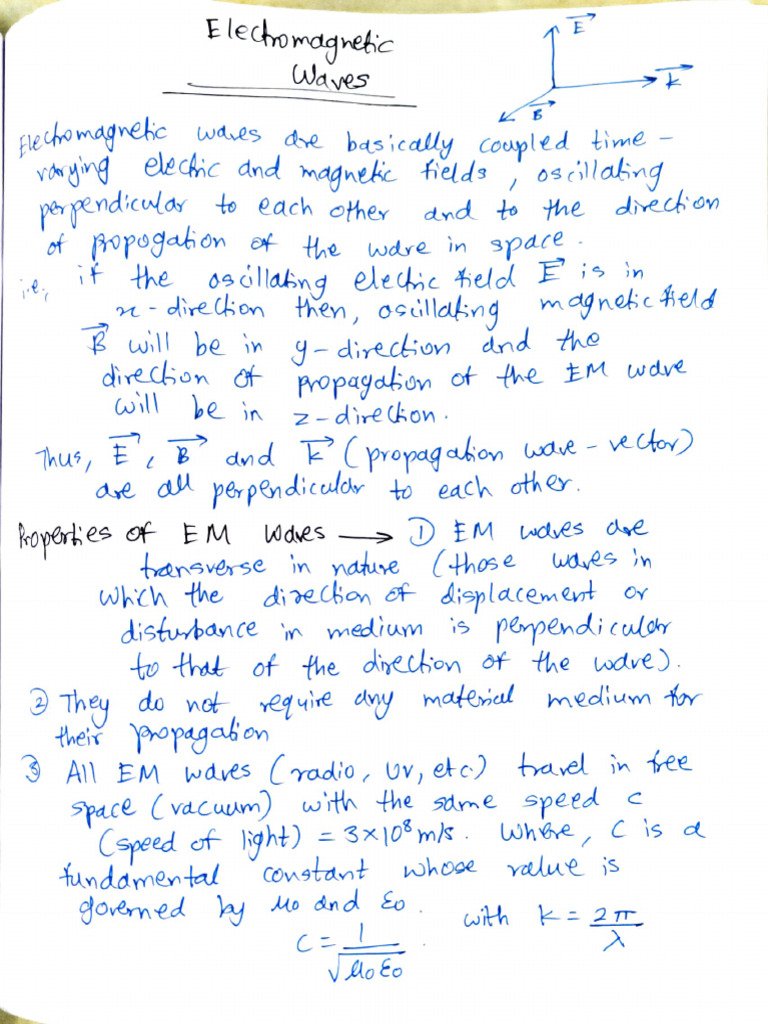 Electromagnetic
Waves
E
k
B
Electromagnetic waves are basically coupled time -
varying electric and magnetic fields, oscillating
perpendicular to each other and to the direction
of propogation of the wave in space.
i.e., if the oscillating electric field E is in
x - direction then, oscillating magnetic field
B will be in y - direction and the
direction of propagation of the EM wave
will be in z - direction.
Thus, E, B and k (propagation wave - vector)
are all perpendicular to each other.
Properties of EM Waves → ① EM waves are
transverse in nature (those waves in
which the direction of displacement or
disturbance in medium is perpendicular
to that of the direction of the wave).
② They do not require any material medium for
their propagation
③ All EM waves (radio, UV, etc.) travel in free
space (vacuum) with the same speed c
(speed of light) = 3×10⁸ m/s. Where, c is a
fundamental constant whose value is
governed by μ₀ and ε₀. with k = 2π/λ
c = 1/√μ₀ε₀